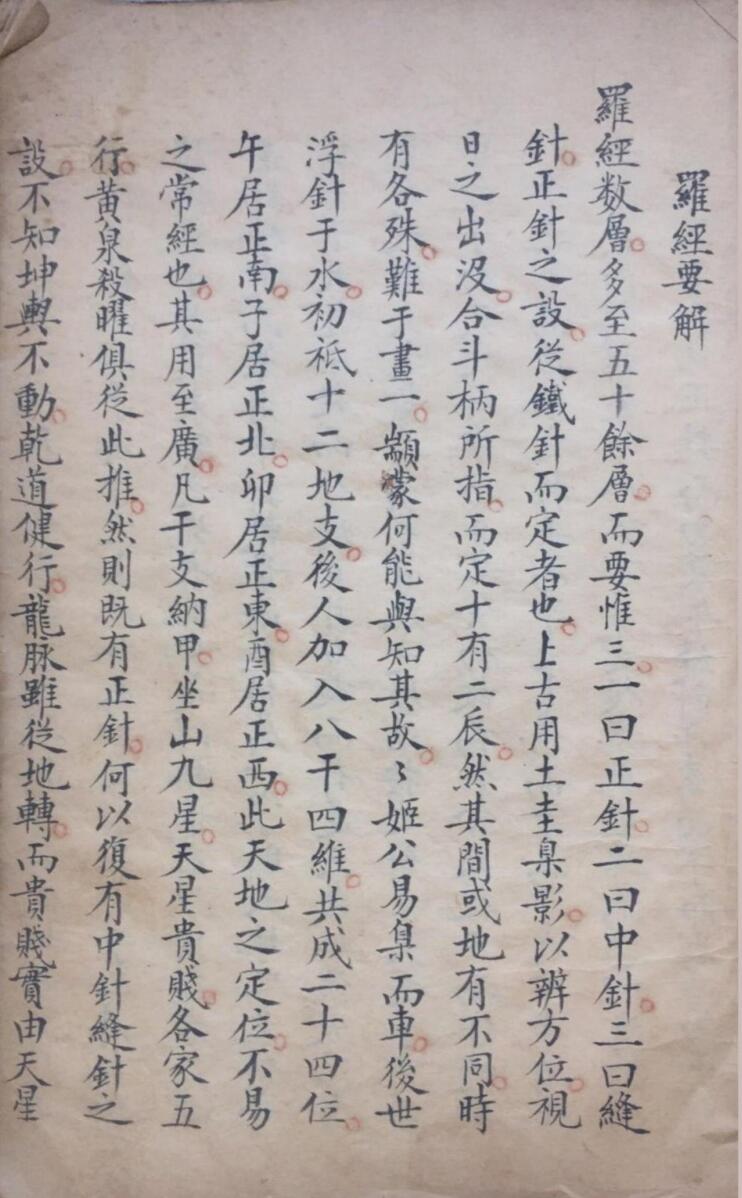 羅經要解
羅經数層。多至五十餘層。而要惟三。一曰正針。二曰中針。三曰縫
針。正針之設。從鐵針而定者也。上古用土圭臬影。以辨方位。視
日之出没。合斗柄所指。而定十有二辰。然其間或地有不同。時
有各殊。難于畫一。顓蒙何能與知其故。〻姬公易臬而車。後世
浮針于水。初衹十二地支。後人加入八干四維。共成二十四位。
午居正南。子居正北。卯居正東。酉居正西。此天地之定位。不易
之常經也。其用至廣。凡干支納甲。坐山九星。天星貴賤。各家五
行。黄泉殺曜俱從此推。然則既有正針。何以復有中針縫針之
設。不知坤輿不動。乾道健行。龍脉雖從地轉。而貴賤實由天星